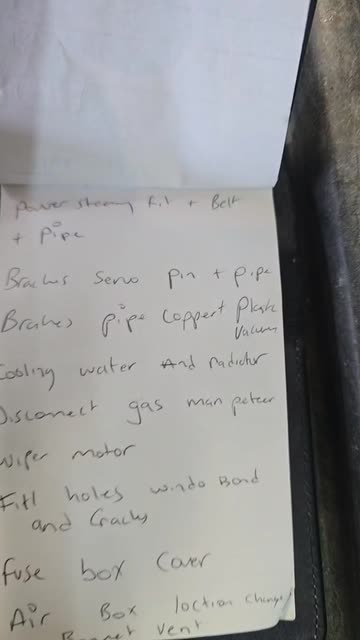 Power steering kit + Belt
+ Pipe
Brackes servo pin + pipe
Brakes pipe Coppert Plastic
Vacum
Cooling water And radictur
Disconnect gas man
wiper motor
Fill holes windo Bond
and Cracks
Fuse box Cover
Air Box loction change/
Bonnet vent